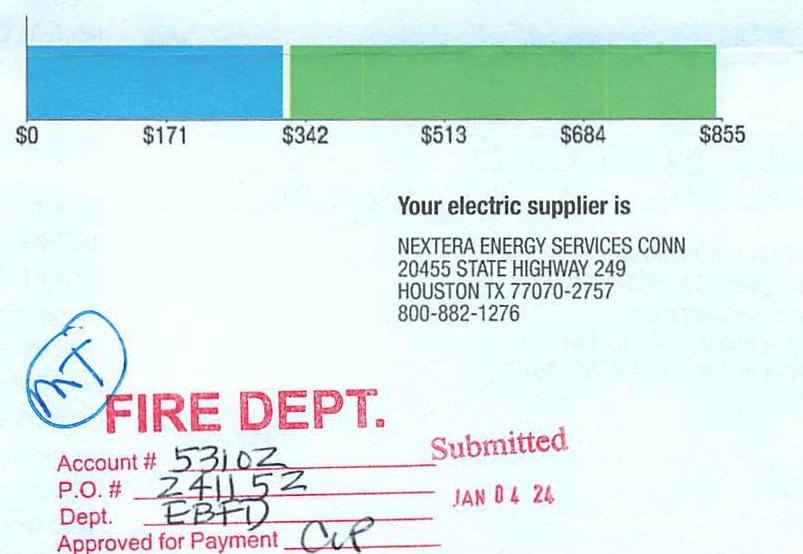 $0 $171 $342 $513 $684 $855
Your electric supplier is
NEXTERA ENERGY SERVICES CONN
20455 STATE HIGHWAY 249
HOUSTON TX 77070-2757
800-882-1276
MT
FIRE DEPT.
Submitted
Account # 53102
P.O. # 241152
JAN 04 24
Dept. EBFD
Approved for Payment